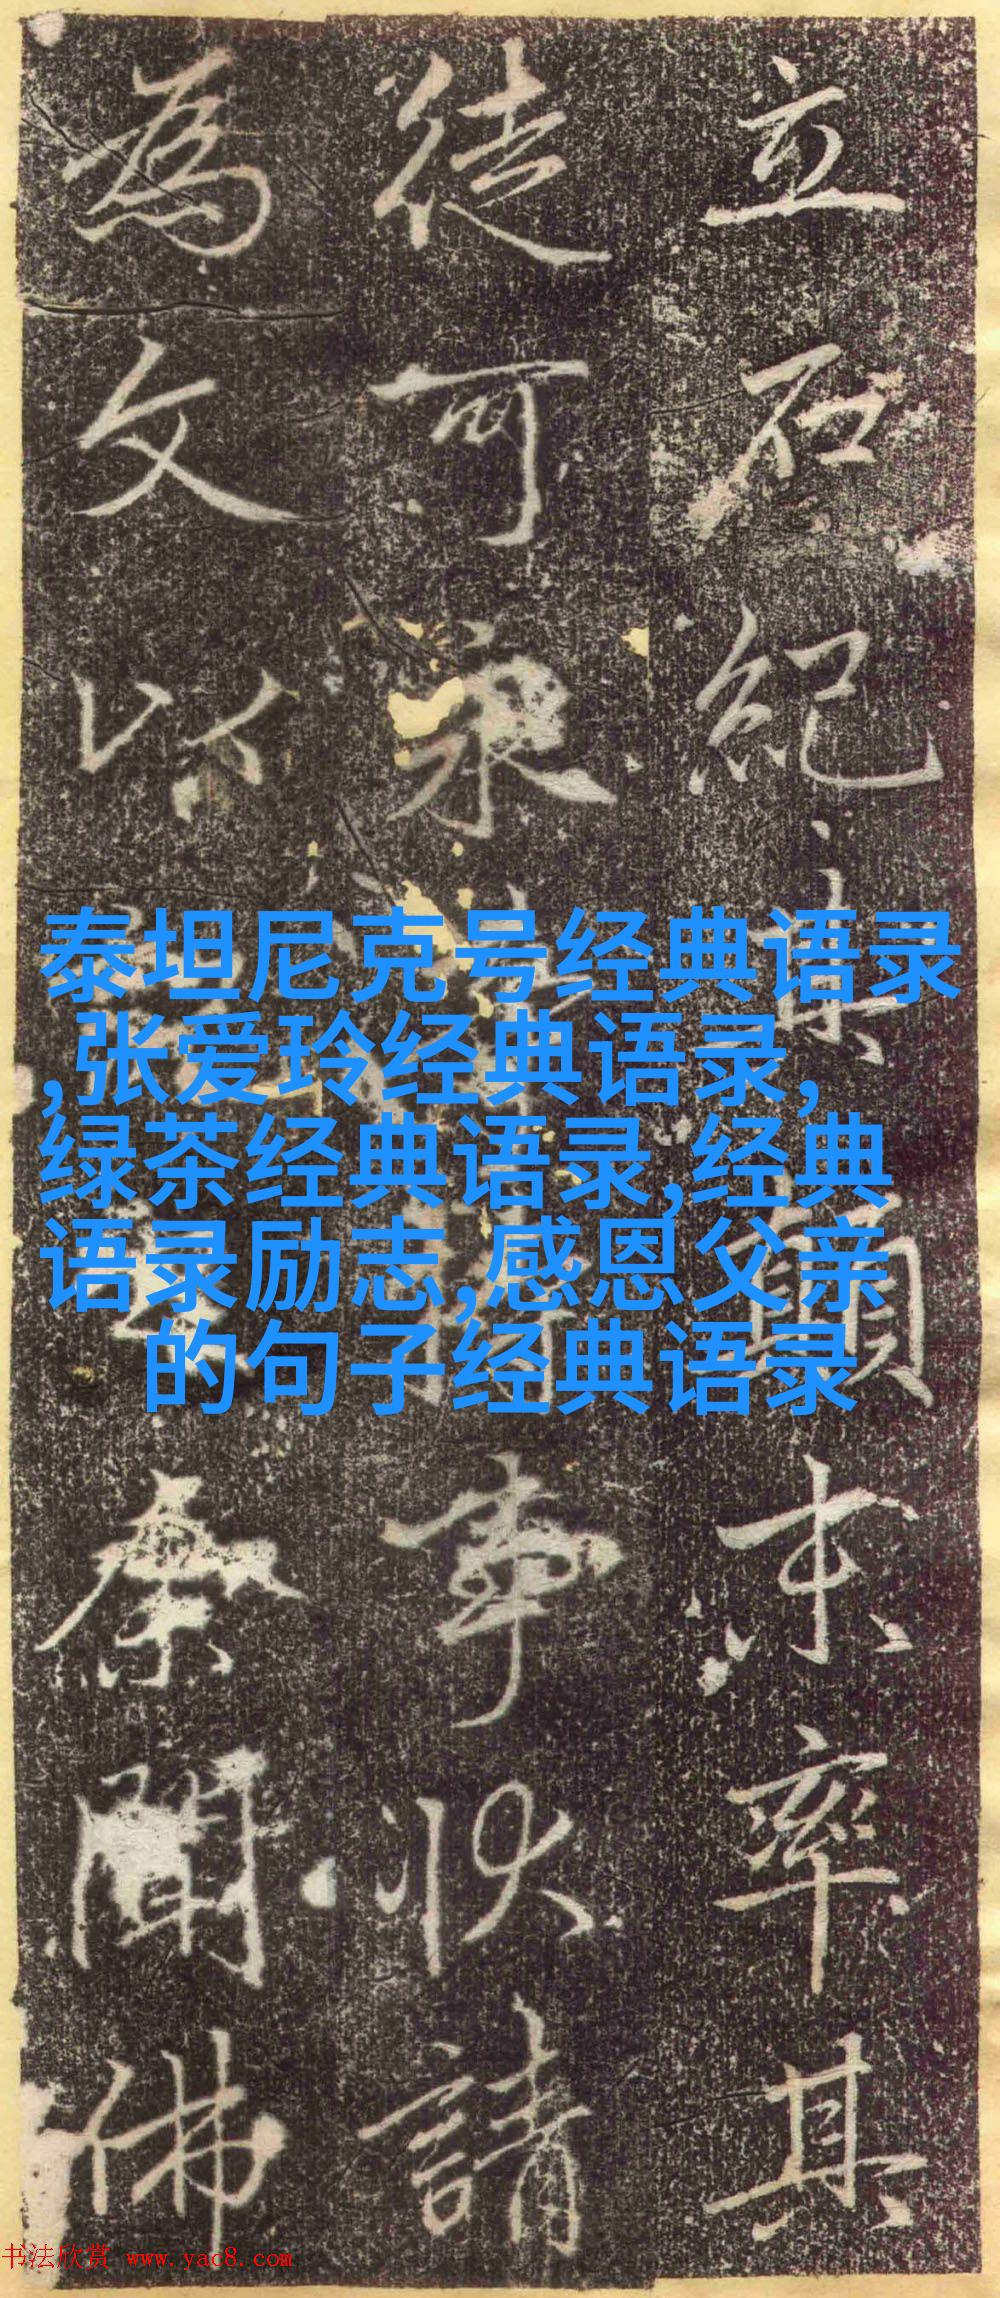 立石紀其顛末率其
徒可永事狀請
為文以聞佛
泰坦尼克号经典语录
,张爱玲经典语录,
绿茶经典语录,经典
语录励志,感恩父亲
的句子经典语录
书法欣赏 www.yac8.com